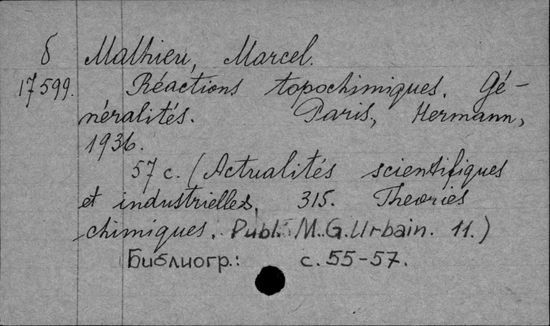 б Mathieu, Marcel.
17599. Réactions topochimiques. Gé-
néralités. Paris, Hermann,
1936.
57 с. (Actualités scientifiques
et industrielles. 315. Theories
chimiques. Publ. M. G. Urbain. 11.)
Библиогр.: с. 55-57.